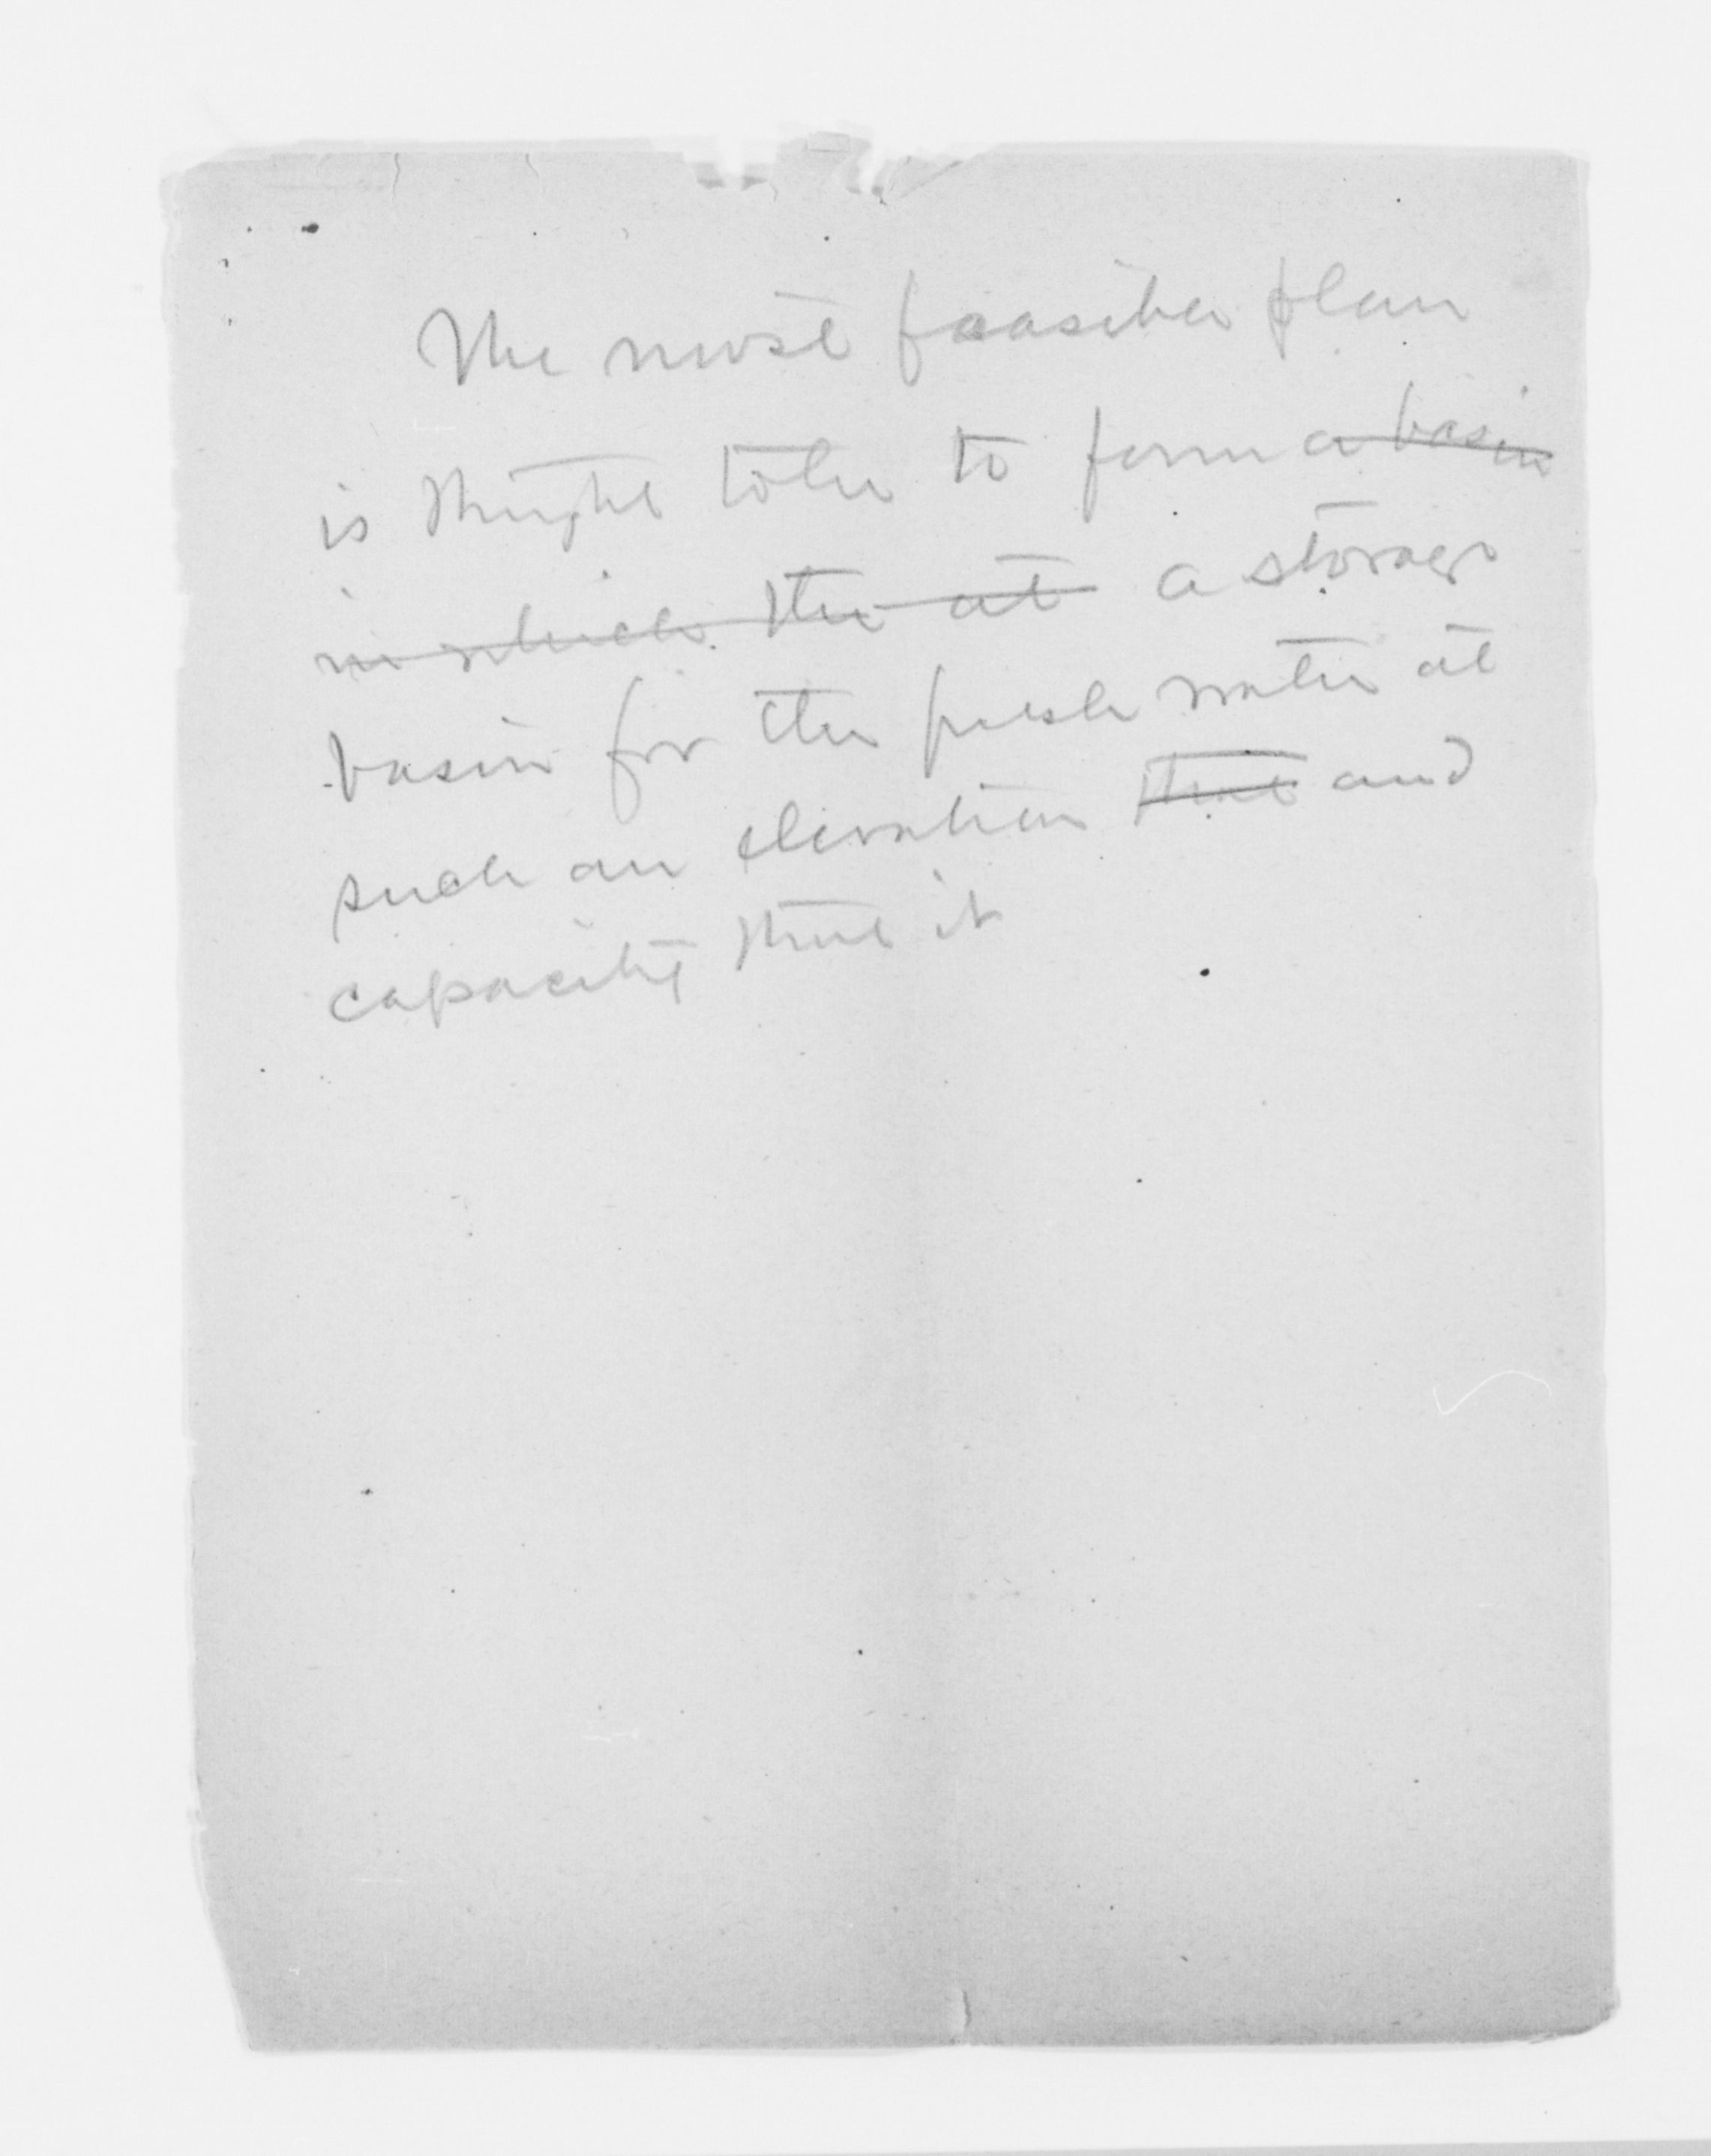 The most feasible plan
is thought to be to form a basin
in which the at a storage
basin for the fresh water at
such an elevation that and
capacity that it